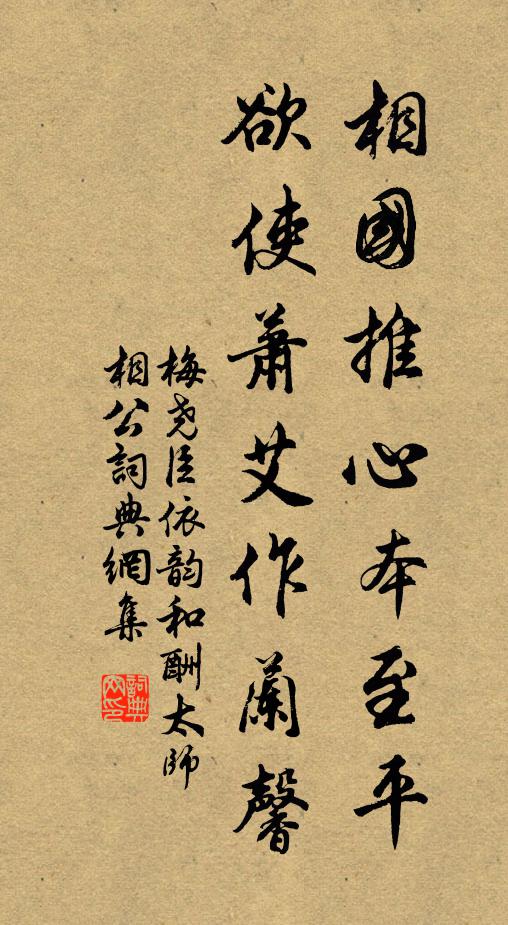 相國推心本至平
欲使蕭艾作蘭馨
梅尧臣依韵和酬太師
相公詞典網集
詞典